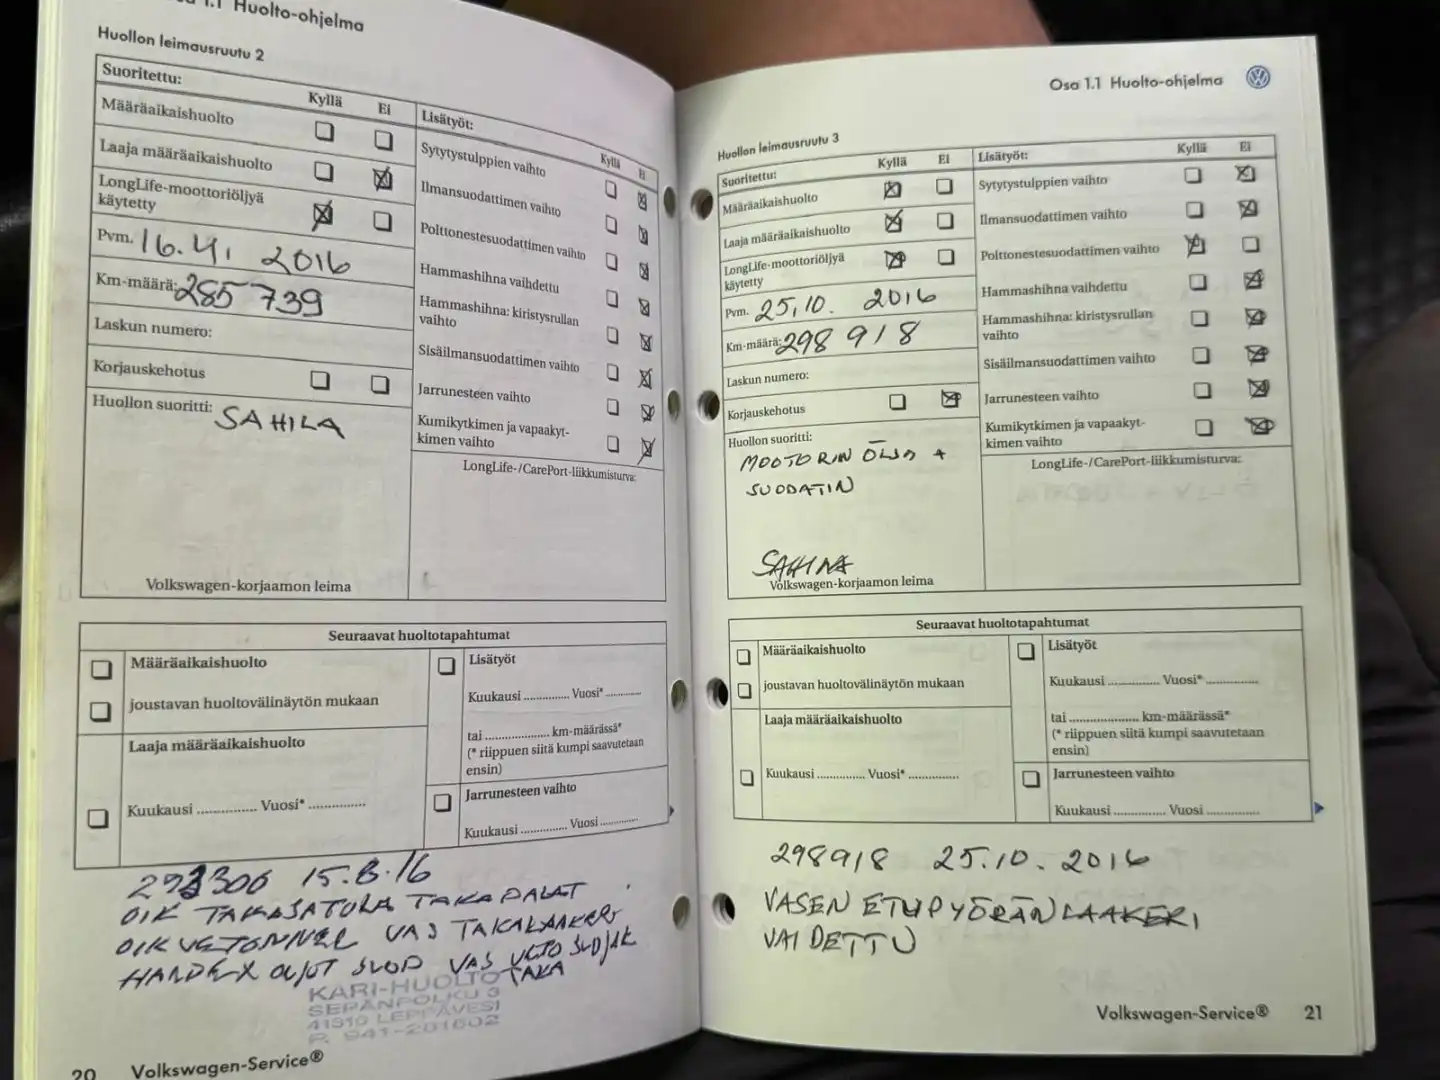 1.1 Huolto-ohjelma
Huollon leimausruutu 2
Suoritettu:
Kyllä Ei
Määräaikaishuolto
Laaja määräaikaishuolto
LongLife-moottoriöljyä
käytetty
Pvm. 16.4. 2016
Km-määrä: 285 739
Laskun numero:
Korjauskehotus
Huollon suoritti: SAHILA
Volkswagen-korjaamon leima
Lisätyöt:
Kyllä
Sytytystulppien vaihto
Ilmansuodattimen vaihto
Polttonestesuodattimen vaihto
Hammashihna vaihdettu
Hammashihna: kiristysrullan
vaihto
Sisäilmansuodattimen vaihto
Jarrunesteen vaihto
Kumikytkimen ja vapaakyt-
kimen vaihto
LongLife-/CarePort-liikkumisturva:
Seuraavat huoltotapahtumat
Määräaikaishuolto
joustavan huoltovälinäytön mukaan
Laaja määräaikaishuolto
Kuukausi .............. Vuosi* ..............
Lisätyöt
Kuukausi .............. Vuosi* ..............
tai .................... km-määrässä*
(* riippuen siitä kumpi saavutetaan
ensin)
Jarrunesteen vaihto
Kuukausi .............. Vuosi ..............
15.8.16
OIK TAKAJATULA TAKAPALAT
OIK VETONNEL VAS TAKALAAKERI
VAS
TAKA
KARI-HUOLTO
SEPÄNPOLKU 3
41310 LEPPÄVESI
P. 941-281602
20 Volkswagen-Service®
Osa 1.1 Huolto-ohjelma
Huollon leimausruutu 3
Suoritettu:
Kyllä Ei
Määräaikaishuolto
Laaja määräaikaishuolto
LongLife-moottoriöljyä
käytetty
Pvm. 25.10. 2016
Km-määrä: 298 918
Laskun numero:
Korjauskehotus
Huollon suoritti:
MOOTORIN ÖLJY +
SUODATIN
Volkswagen-korjaamon leima
Lisätyöt:
Kyllä Ei
Sytytystulppien vaihto
Ilmansuodattimen vaihto
Polttonestesuodattimen vaihto
Hammashihna vaihdettu
Hammashihna: kiristysrullan
vaihto
Sisäilmansuodattimen vaihto
Jarrunesteen vaihto
Kumikytkimen ja vapaakyt-
kimen vaihto
LongLife-/CarePort-liikkumisturva:
Seuraavat huoltotapahtumat
Määräaikaishuolto
joustavan huoltovälinäytön mukaan
Laaja määräaikaishuolto
Kuukausi .............. Vuosi* ..............
Lisätyöt
Kuukausi .............. Vuosi* ..............
tai .................... km-määrässä*
(* riippuen siitä kumpi saavutetaan
ensin)
Jarrunesteen vaihto
Kuukausi .............. Vuosi ..............
298918 25.10.2016
VASEN ETUPYÖRÄN LAAKERI
VAIDETTU
Volkswagen-Service® 21